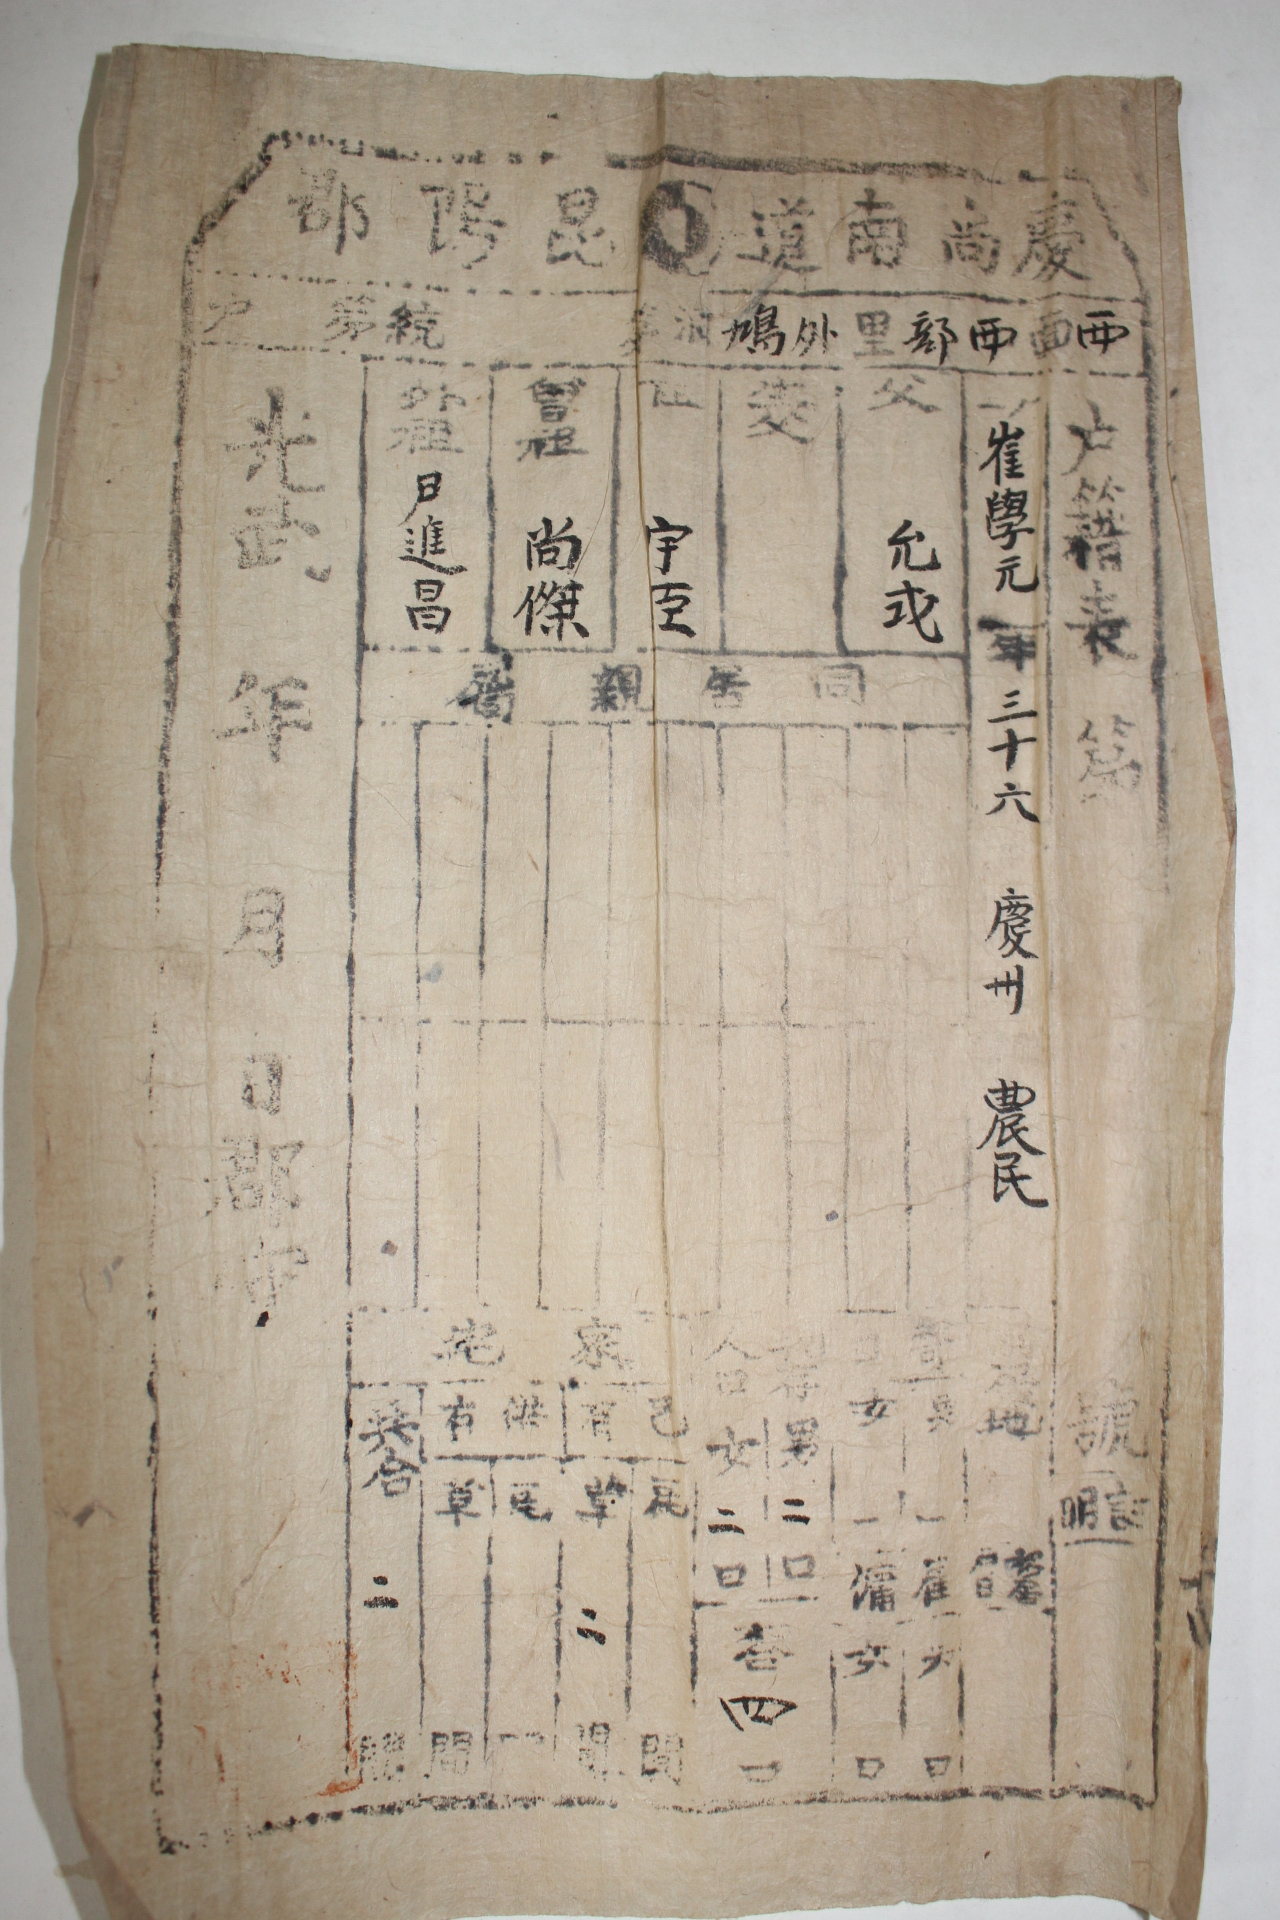 慶尚南道 昆陽郡
西面西部里外鳩洞第 統第 戶
戶籍表 第 號
崔學元 年三十六 慶州 農民
父 允
養父
祖 宇臣
曾祖 尚傑
外祖 尹進昌
同居親屬
寄口 男 一 雇 口
口 女 一 傭女 口
現存 男 二 口
人口 女 二 口
合四口
家宅
己有 瓦 間
草 二 間
借有 瓦
草 間
共合 二 間
光武 年 月 日 郡守